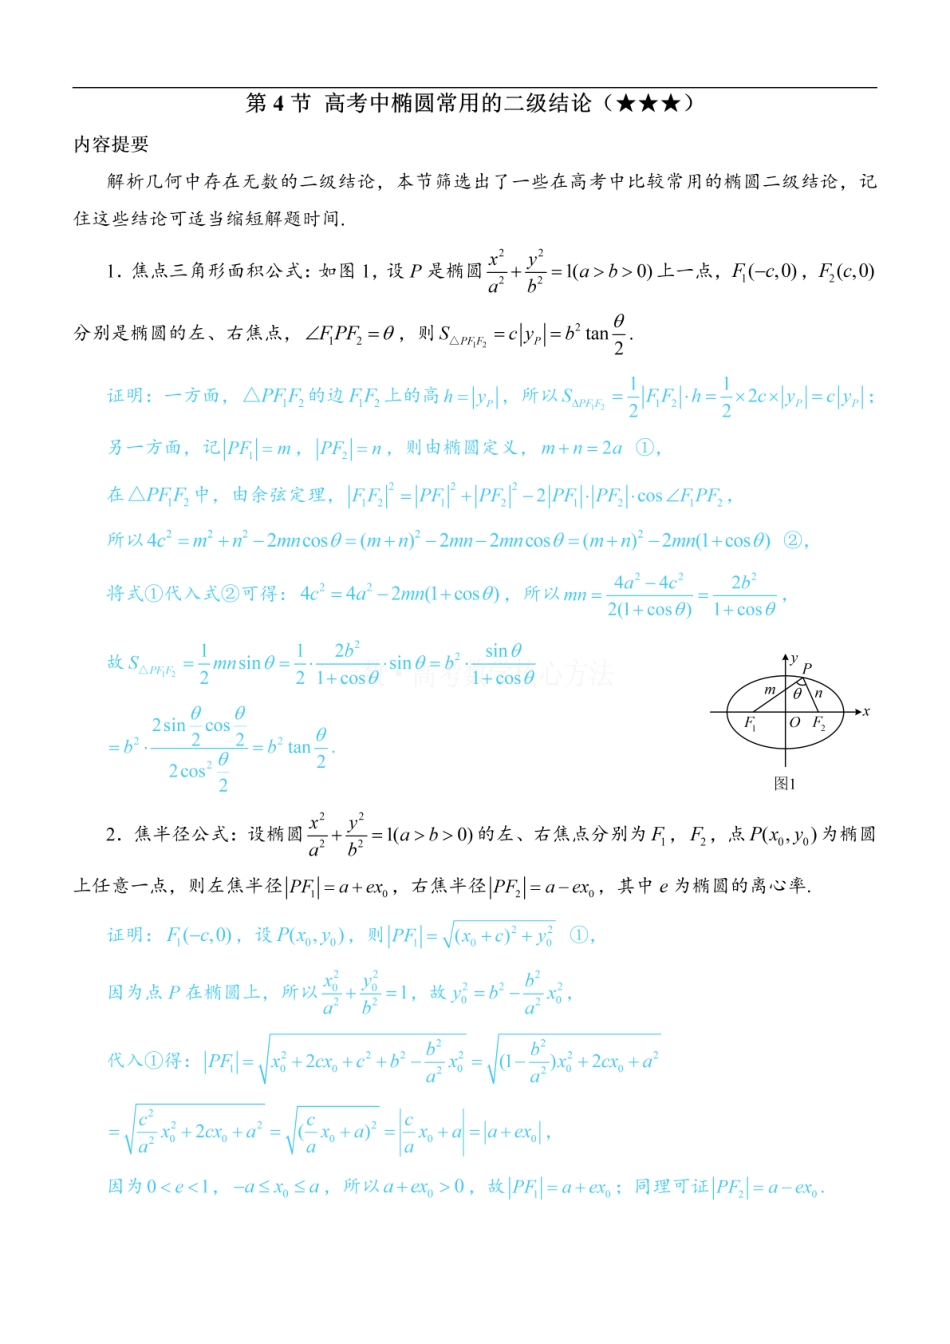 第 4 节 高考中椭圆常用的二级结论（★★★）
内容提要
解析几何中存在无数的二级结论，本节筛选出了一些在高考中比较常用的椭圆二级结论，记
住这些结论可适当缩短解题时间.
1. 焦点三角形面积公式：如图 1，设 P 是椭圆 x²/a² + y²/b² = 1(a > b > 0) 上一点，F₁(−c,0)，F₂(c,0)
分别是椭圆的左、右焦点，∠F₁PF₂ = θ，则 S△PF₁F₂ = c|y_P| = b² tan θ/2.
证明：一方面，△PF₁F₂ 的边 F₁F₂ 上的高 h = |y_P|，所以 S△PF₁F₂ = 1/2 |F₁F₂|·h = 1/2 × 2c × |y_P| = c|y_P|；
另一方面，记 |PF₁| = m，|PF₂| = n，则由椭圆定义，m + n = 2a ①，
在 △PF₁F₂ 中，由余弦定理，|F₁F₂|² = |PF₁|² + |PF₂|² − 2|PF₁|·|PF₂|·cos∠F₁PF₂，
所以 4c² = m² + n² − 2mn cosθ = (m + n)² − 2mn − 2mn cosθ = (m + n)² − 2mn(1 + cosθ) ②，
将式①代入式②可得：4c² = 4a² − 2mn(1 + cosθ)，所以 mn = (4a² − 4c²)/(2(1 + cosθ)) = 2b²/(1 + cosθ)，
故 S△PF₁F₂ = 1/2 mn sinθ = 1/2 · 2b²/(1 + cosθ) · sinθ = b² · sinθ/(1 + cosθ)
= b² · (2sin θ/2 cos θ/2)/(2cos² θ/2) = b² tan θ/2.
y
P
m θ n
F₁ O F₂ x
图1
2. 焦半径公式：设椭圆 x²/a² + y²/b² = 1(a > b > 0) 的左、右焦点分别为 F₁，F₂，点 P(x₀, y₀) 为椭圆
上任意一点，则左焦半径 |PF₁| = a + ex₀，右焦半径 |PF₂| = a − ex₀，其中 e 为椭圆的离心率.
证明：F₁(−c,0)，设 P(x₀, y₀)，则 |PF₁| = √((x₀ + c)² + y₀²) ①，
因为点 P 在椭圆上，所以 x₀²/a² + y₀²/b² = 1，故 y₀² = b² − b²/a² x₀²，
代入①得：|PF₁| = √(x₀² + 2cx₀ + c² + b² − b²/a² x₀²) = √((1 − b²/a²)x₀² + 2cx₀ + a²)
= √(c²/a² x₀² + 2cx₀ + a²) = √((c/a x₀ + a)²) = |c/a x₀ + a| = |a + ex₀|，
因为 0 < e < 1，−a ≤ x₀ ≤ a，所以 a + ex₀ > 0，故 |PF₁| = a + ex₀；同理可证 |PF₂| = a − ex₀.